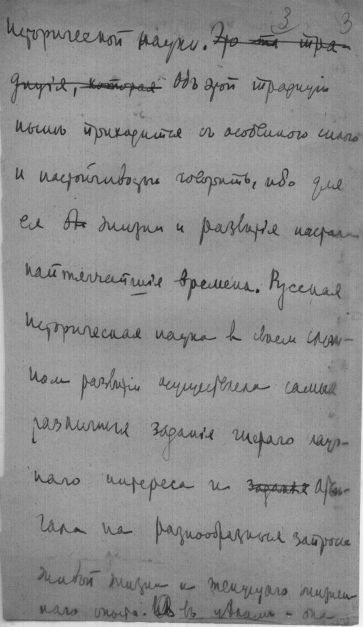 3 3
исторической науки. Это та тра-
диція, которая Объ этой традиціи
нынѣ приходится съ особенною силою
и настойчивостью говорить, ибо для
ея жизни и развитія настали
наитягчайшія времена. Русская
историческая наука в своем слож-
ном развитіи осуществляла самыя
различныя заданія чистаго науч-
наго интереса и заданія
на разнообразные запросы
живой жизни и текущаго жизнен-
наго опыта. въ цѣлом - она